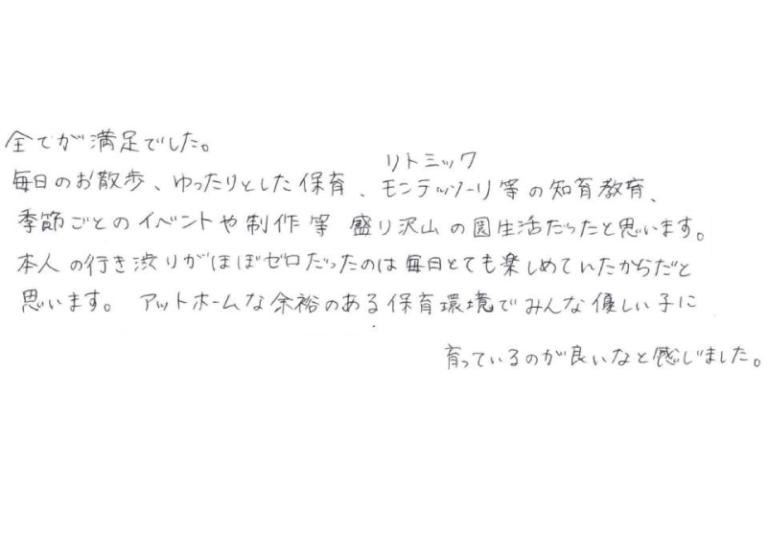 全てが満足でした。
リトミック
毎日のお散歩、ゆったりとした保育、モンテッソーリ等の知育教育、
季節ごとのイベントや制作等 盛り沢山の園生活だったと思います。
本人の行き渋りがほぼゼロだったのは毎日とても楽しめていたからだと
思います。 アットホームな余裕のある保育環境でみんな優しい子に
育っているのが良いなと感じました。